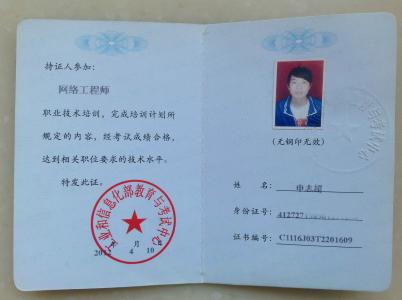 持证人参加：
网络工程师
职业技术培训，完成培训计划所
规定的内容，经考试成绩合格，
达到相关职位要求的技术水平。
特发此证。
工业和信息化部教育与考试中心
2012 年 4 月 10 日
(无钢印无效)
姓 名：申志超
身份证号：412727
证书编号：C1116J03T2201609